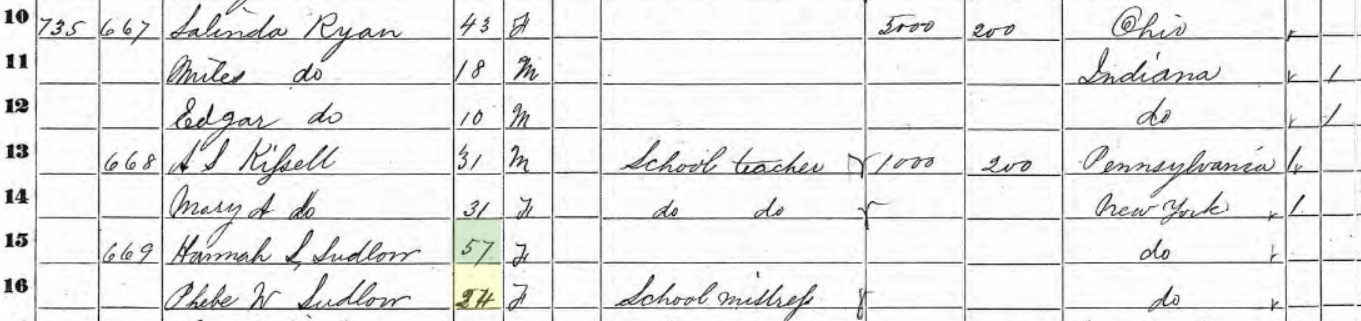 10 735 667 Salinda Ryan 43 F 5000 200 Ohio
11 Miles do 18 M Indiana 1
12 Edgar do 10 M do 1
13 668 A S Kifsell 31 M School teacher 1000 200 Pennsylvania 1
14 Mary A do 31 F do do New York 1
15 669 Hannah L Sudlow 57 F do
16 Phebe W Sudlow 24 F School mistress do